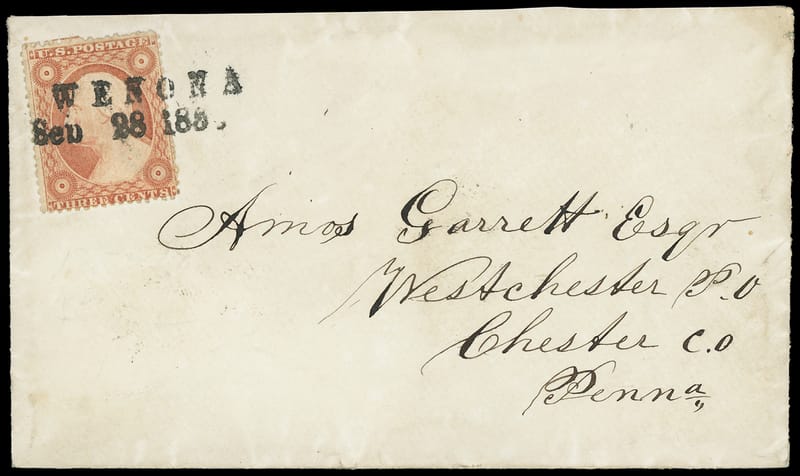 U.S. POSTAGE
WENONA
Sep 28 185
THREE CENTS
Amos Garrett Esqr
Westchester P.O
Chester C.O
Pennª